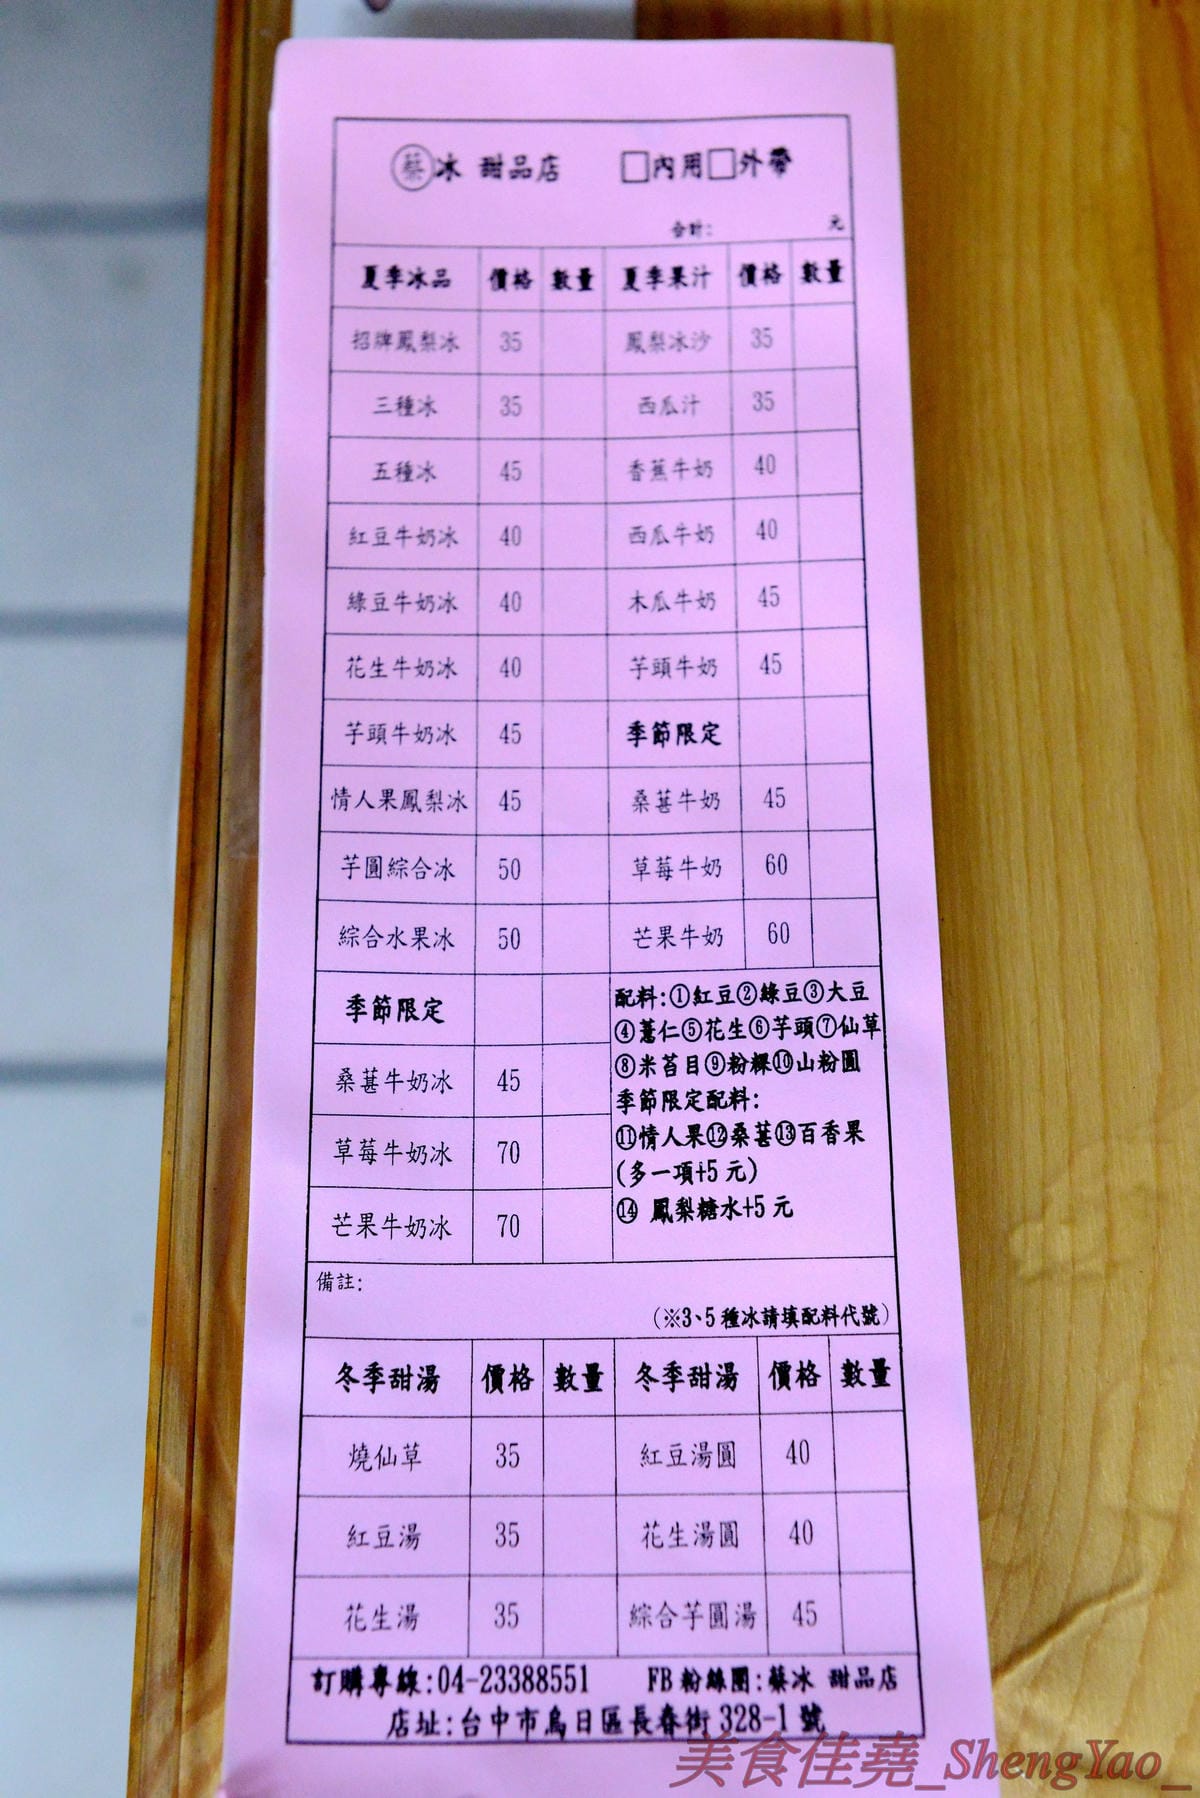 蔡冰 甜品店 □內用□外帶
合計: 元
夏季冰品 價格 數量 夏季果汁 價格 數量
招牌鳳梨冰 35 鳳梨冰沙 35
三種冰 35 西瓜汁 35
五種冰 45 香蕉牛奶 40
紅豆牛奶冰 40 西瓜牛奶 40
綠豆牛奶冰 40 木瓜牛奶 45
花生牛奶冰 40 芋頭牛奶 45
芋頭牛奶冰 45 季節限定
情人果鳳梨冰 45 桑葚牛奶 45
芋圓綜合冰 50 草莓牛奶 60
綜合水果冰 50 芒果牛奶 60
季節限定
桑葚牛奶冰 45
草莓牛奶冰 70
芒果牛奶冰 70
配料:①紅豆②綠豆③大豆
④薏仁⑤花生⑥芋頭⑦仙草
⑧米苔目⑨粉粿⑩山粉圓
季節限定配料:
⑪情人果⑫桑葚⑬百香果
(多一項+5元)
⑭ 鳳梨糖水+5元
備註:
(※3、5種冰請填配料代號)
冬季甜湯 價格 數量 冬季甜湯 價格 數量
燒仙草 35 紅豆湯圓 40
紅豆湯 35 花生湯圓 40
花生湯 35 綜合芋圓湯 45
訂購專線:04-23388551 FB粉絲團:蔡冰 甜品店
店址:台中市烏日區長春街328-1號
美食佳堯_ShengYao_